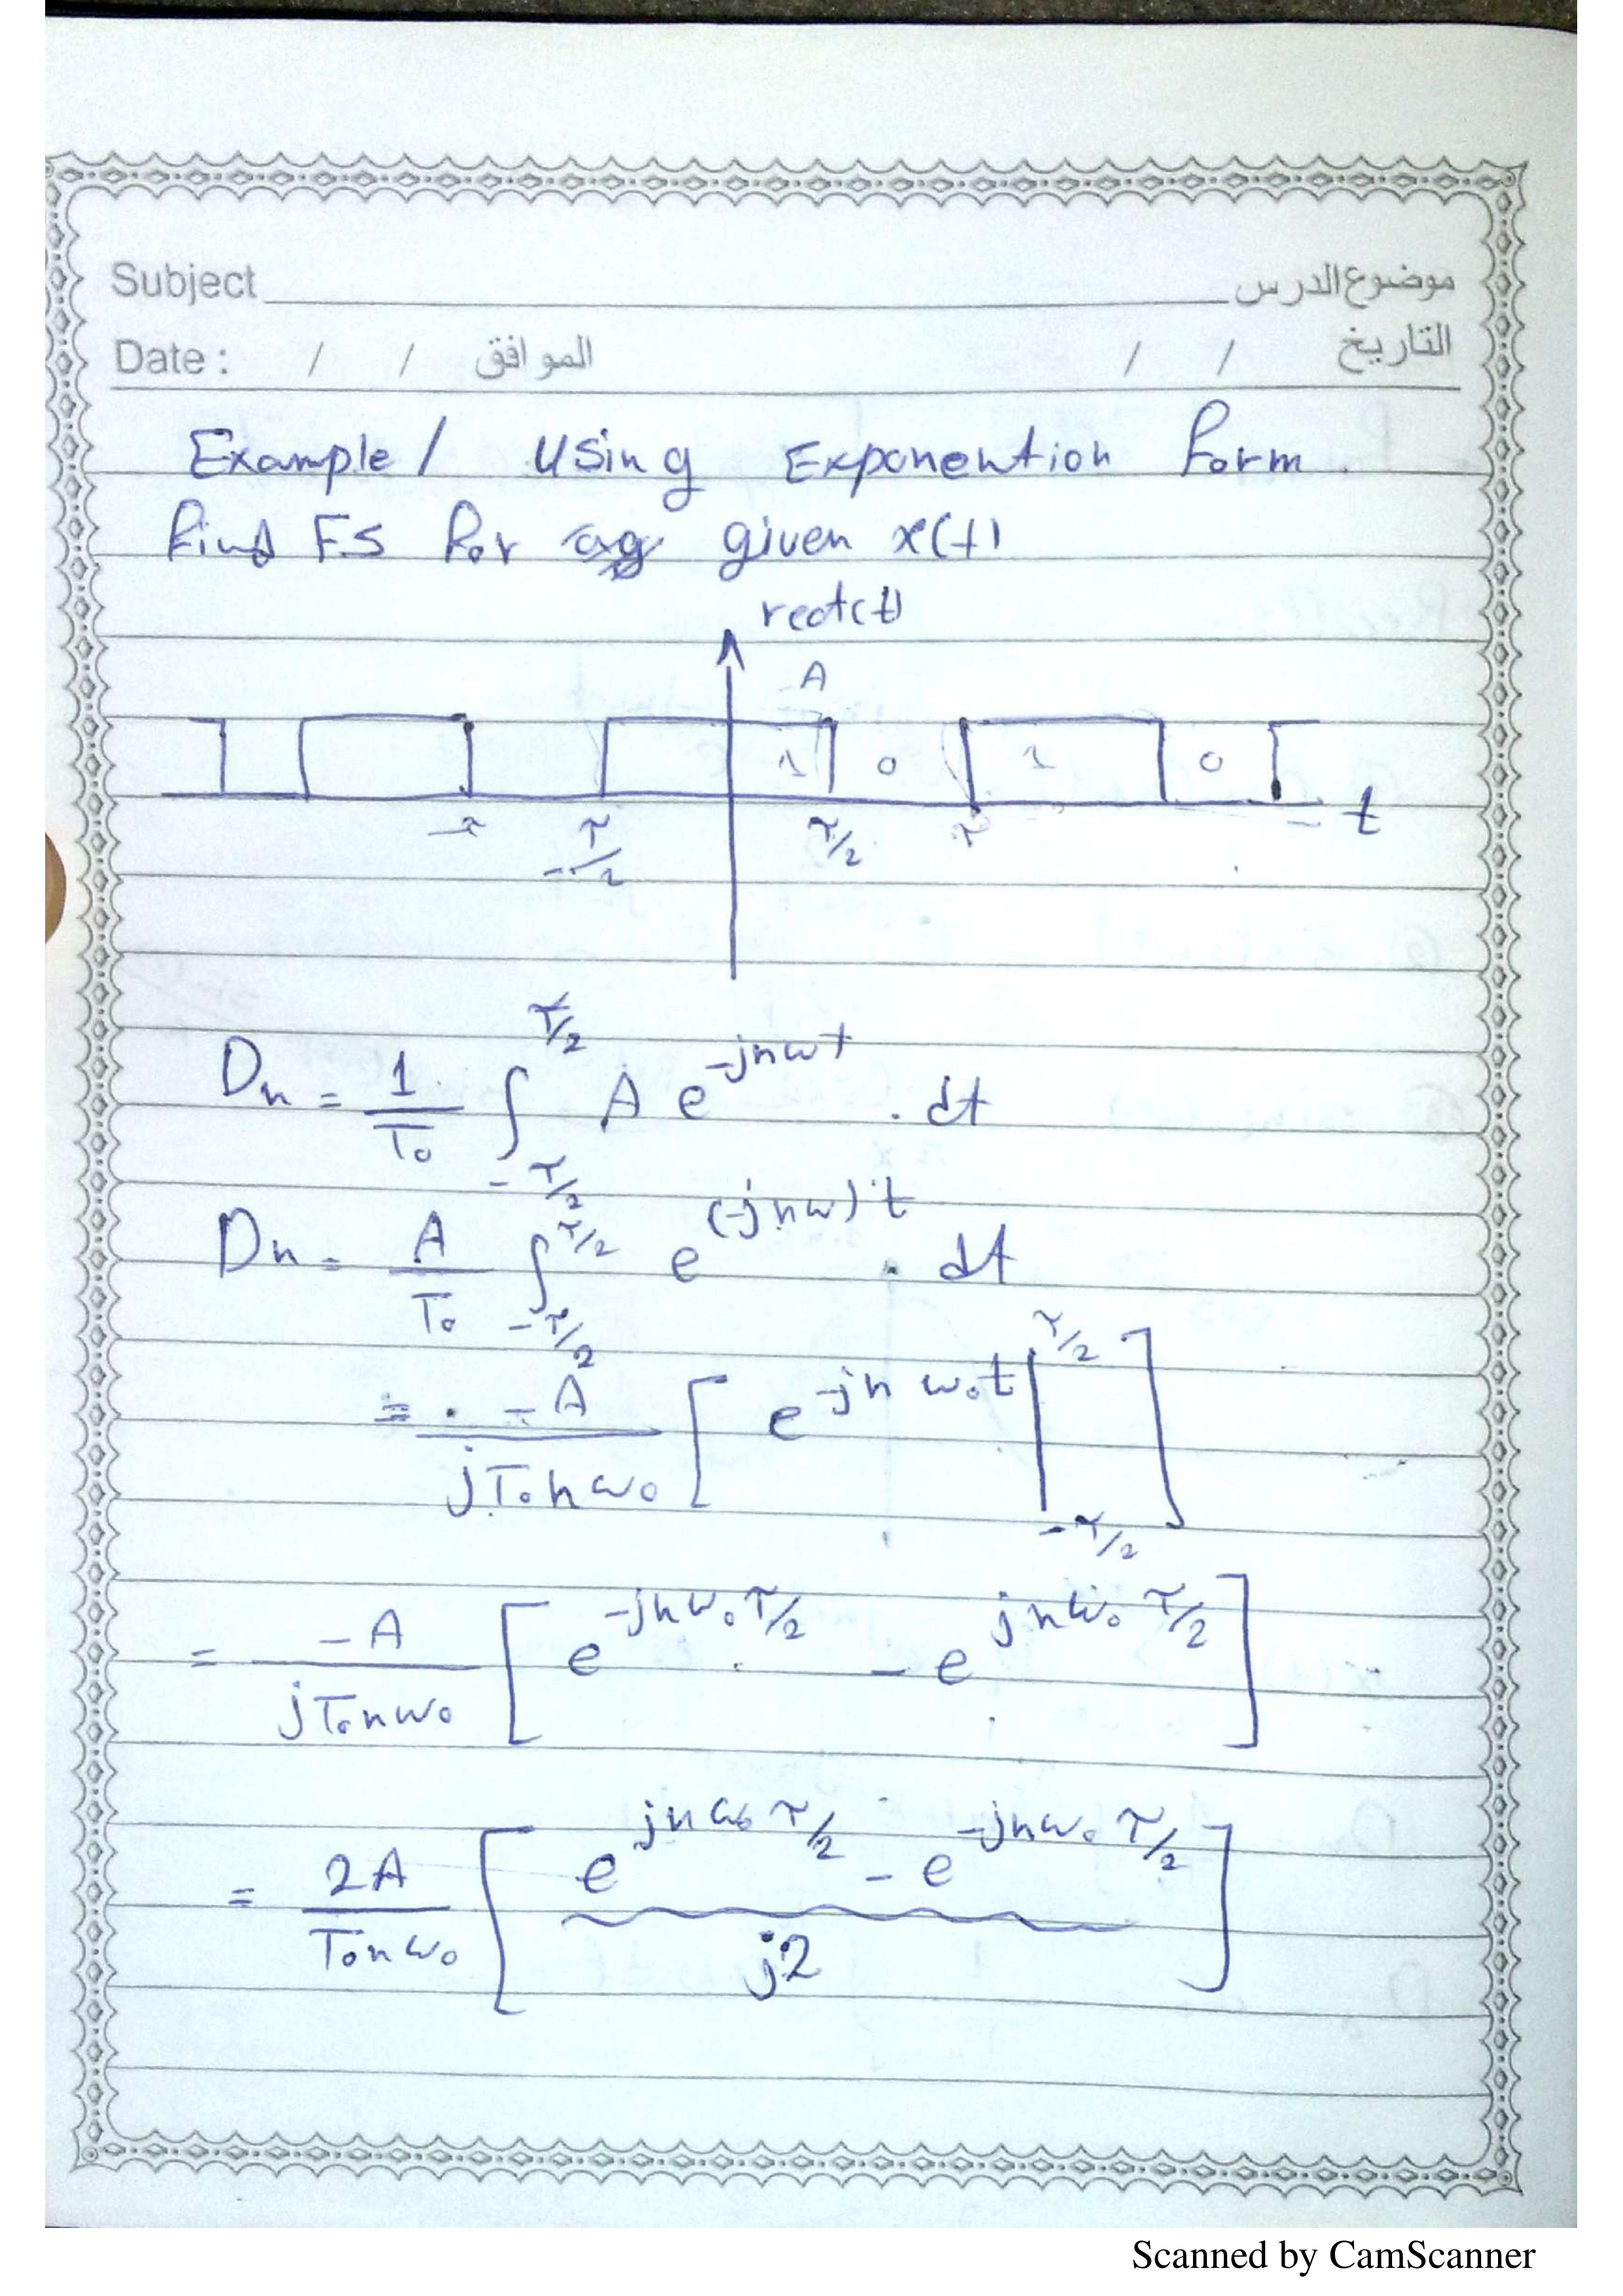 Subject موضوع الدرس
Date : / / الموافق / / التاريخ
Example / Using Exponention Form.
find F.S for given x(t)
rect(t)
A
1 0 1 0
-τ -τ/2 τ/2 τ t
Dn = 1/T₀ ∫_{-τ/2}^{τ/2} A e^{-jnωt} . dt
Dn = A/T₀ ∫_{-τ/2}^{τ/2} e^{(-jnω)t} . dt
= -A/(jT₀nω₀) [ e^{-jnω₀t} |_{-τ/2}^{τ/2} ]
= -A/(jT₀nω₀) [ e^{-jnω₀τ/2} - e^{jnω₀τ/2} ]
= 2A/(T₀nω₀) [ (e^{jnω₀τ/2} - e^{-jnω₀τ/2})/j2 ]
Scanned by CamScanner